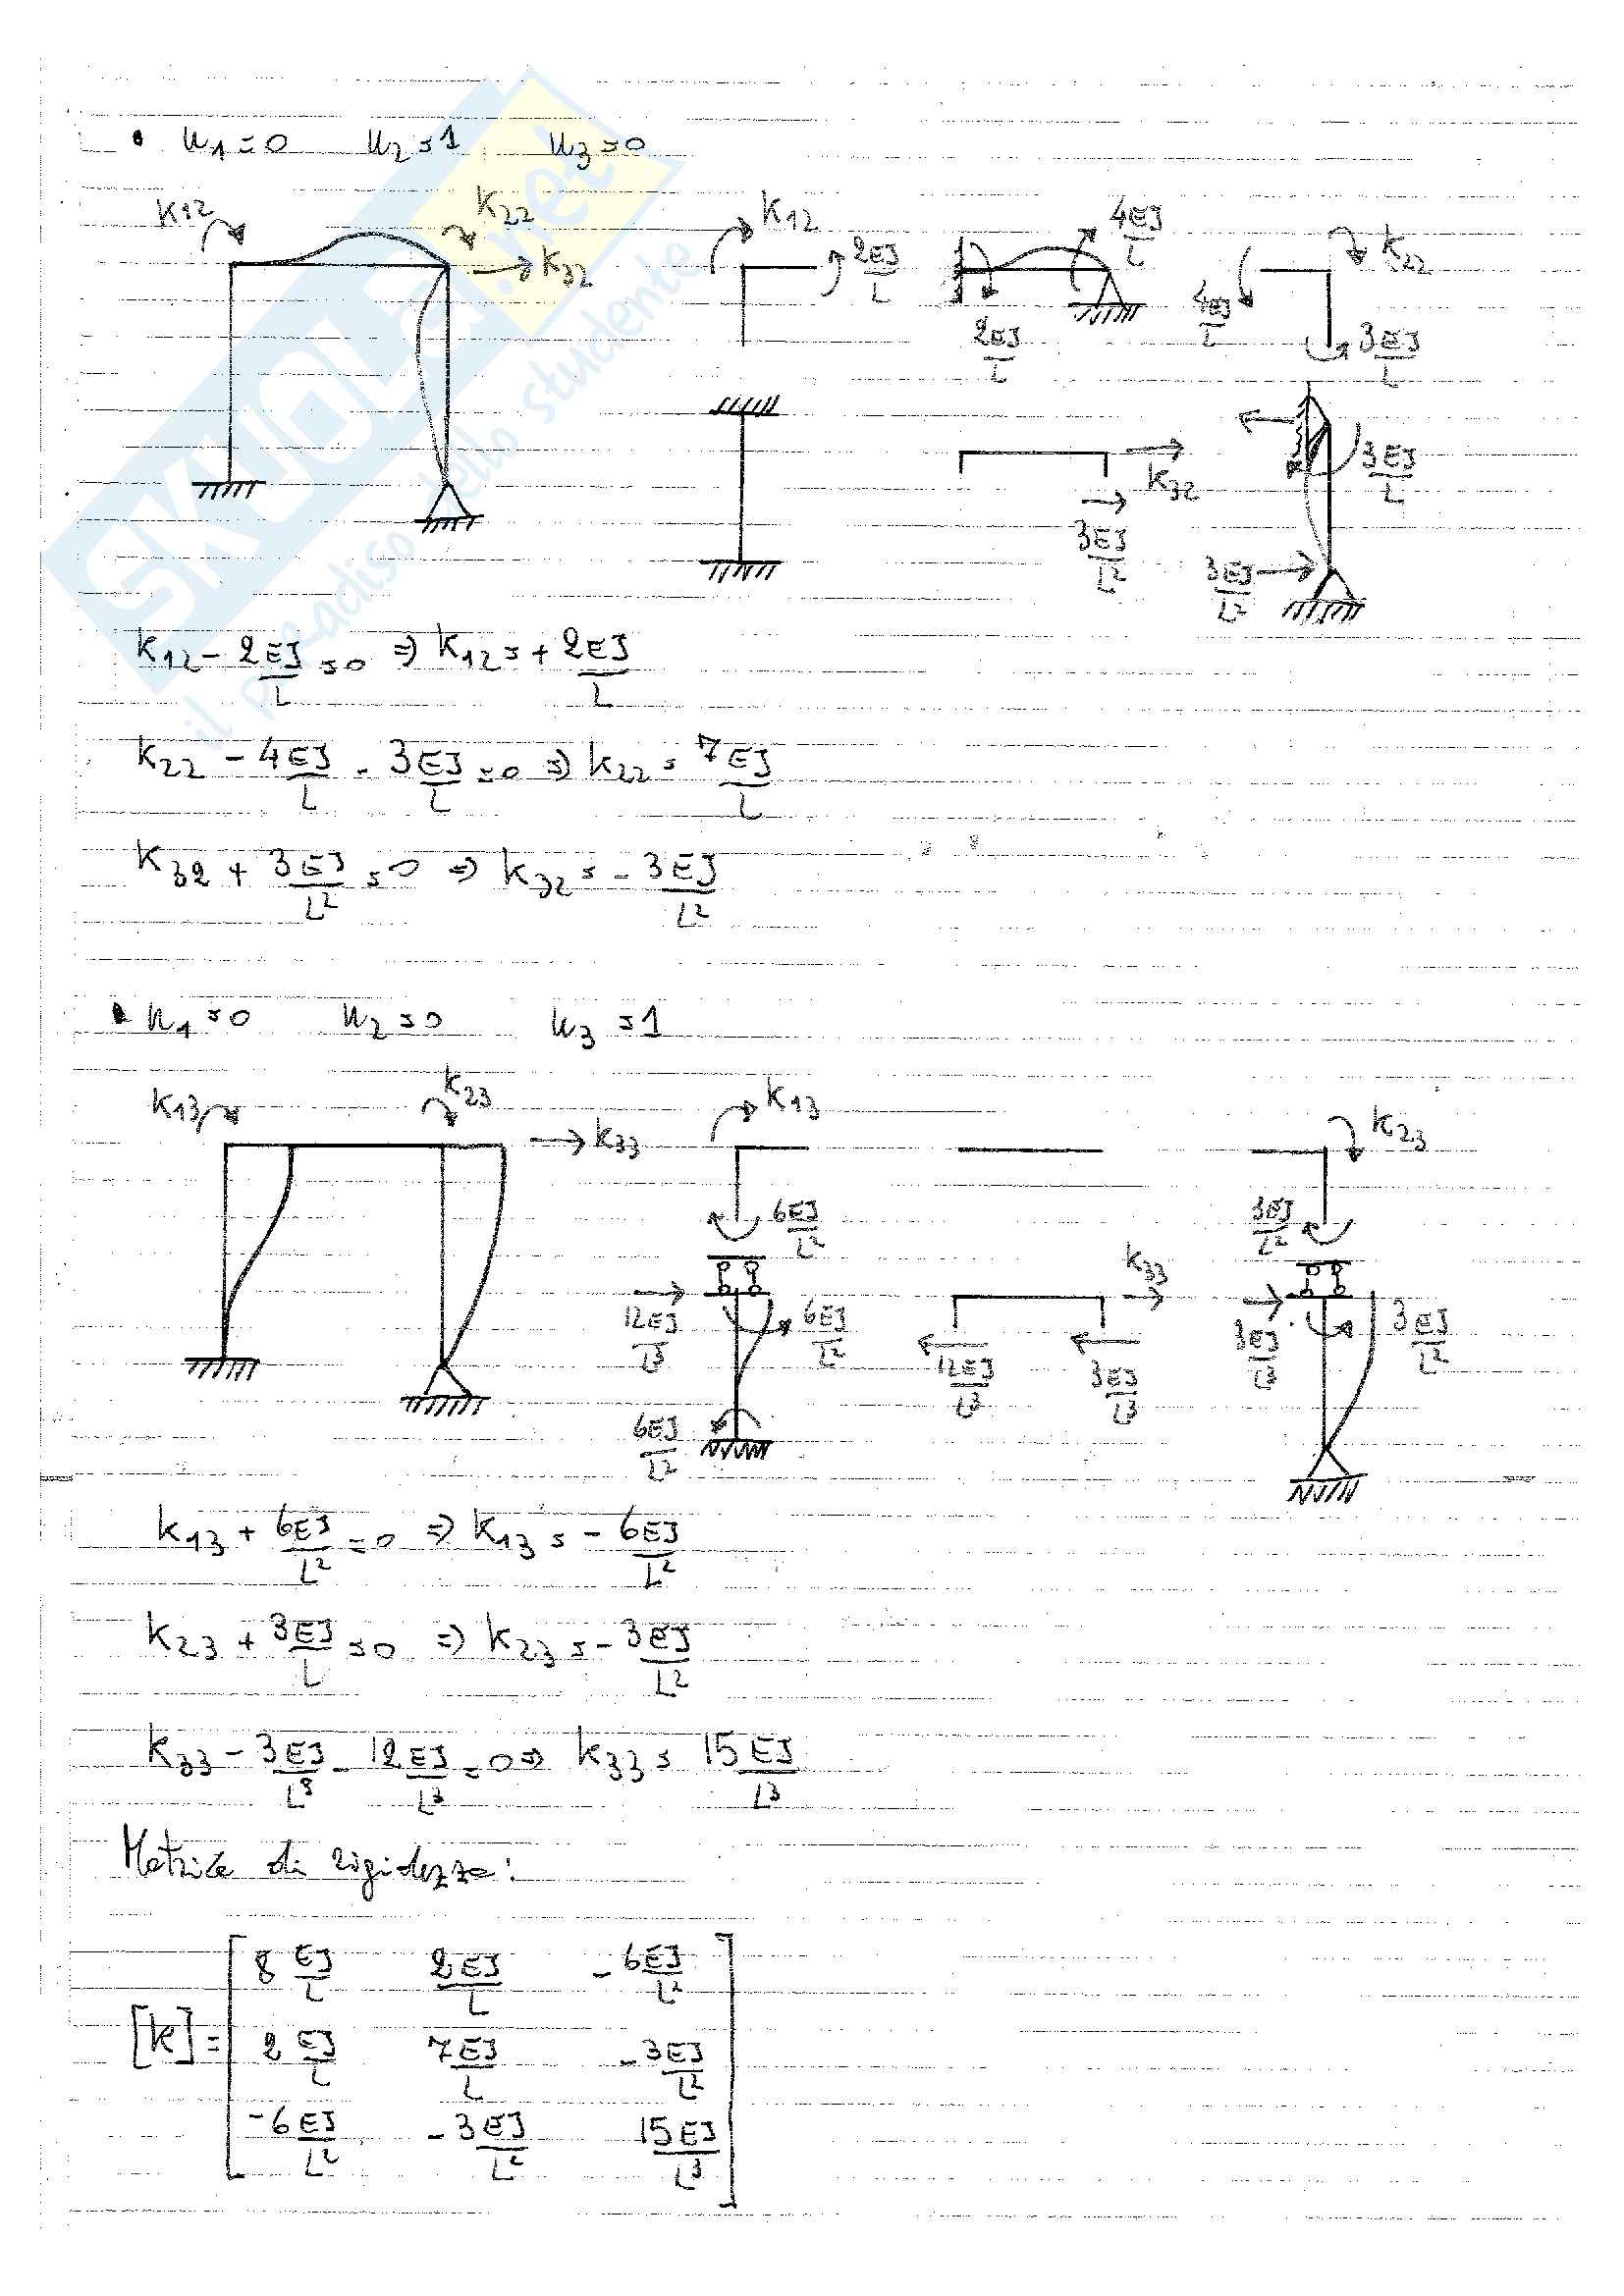 • u1=0 u2=1 u3=0
K12 K22 K32
K12 2EJ/L
2EJ/L 4EJ/L
4EJ/L K22 3EJ/L
K32 3EJ/L²
3EJ/L 3EJ/L²
K12 - 2EJ/L = 0 ⇒ K12 = + 2EJ/L
K22 - 4EJ/L - 3EJ/L = 0 ⇒ K22 = 7EJ/L
K32 + 3EJ/L² = 0 ⇒ K32 = - 3EJ/L²
• u1=0 u2=0 u3=1
K13 K23 K33
K13 6EJ/L²
12EJ/L³ 6EJ/L²
6EJ/L²
K33
12EJ/L³ 3EJ/L³
K23 3EJ/L²
3EJ/L³ 3EJ/L²
K13 + 6EJ/L² = 0 ⇒ K13 = - 6EJ/L²
K23 + 3EJ/L = 0 ⇒ K23 = - 3EJ/L²
K33 - 3EJ/L³ - 12EJ/L³ = 0 ⇒ K33 = 15EJ/L³
Matrice di rigidezza:
8 EJ/L 2EJ/L - 6EJ/L²
[K] = 2 EJ/L 7EJ/L - 3EJ/L²
-6EJ/L² - 3EJ/L² 15EJ/L³
SKUOLA.net
il paradiso dello studente